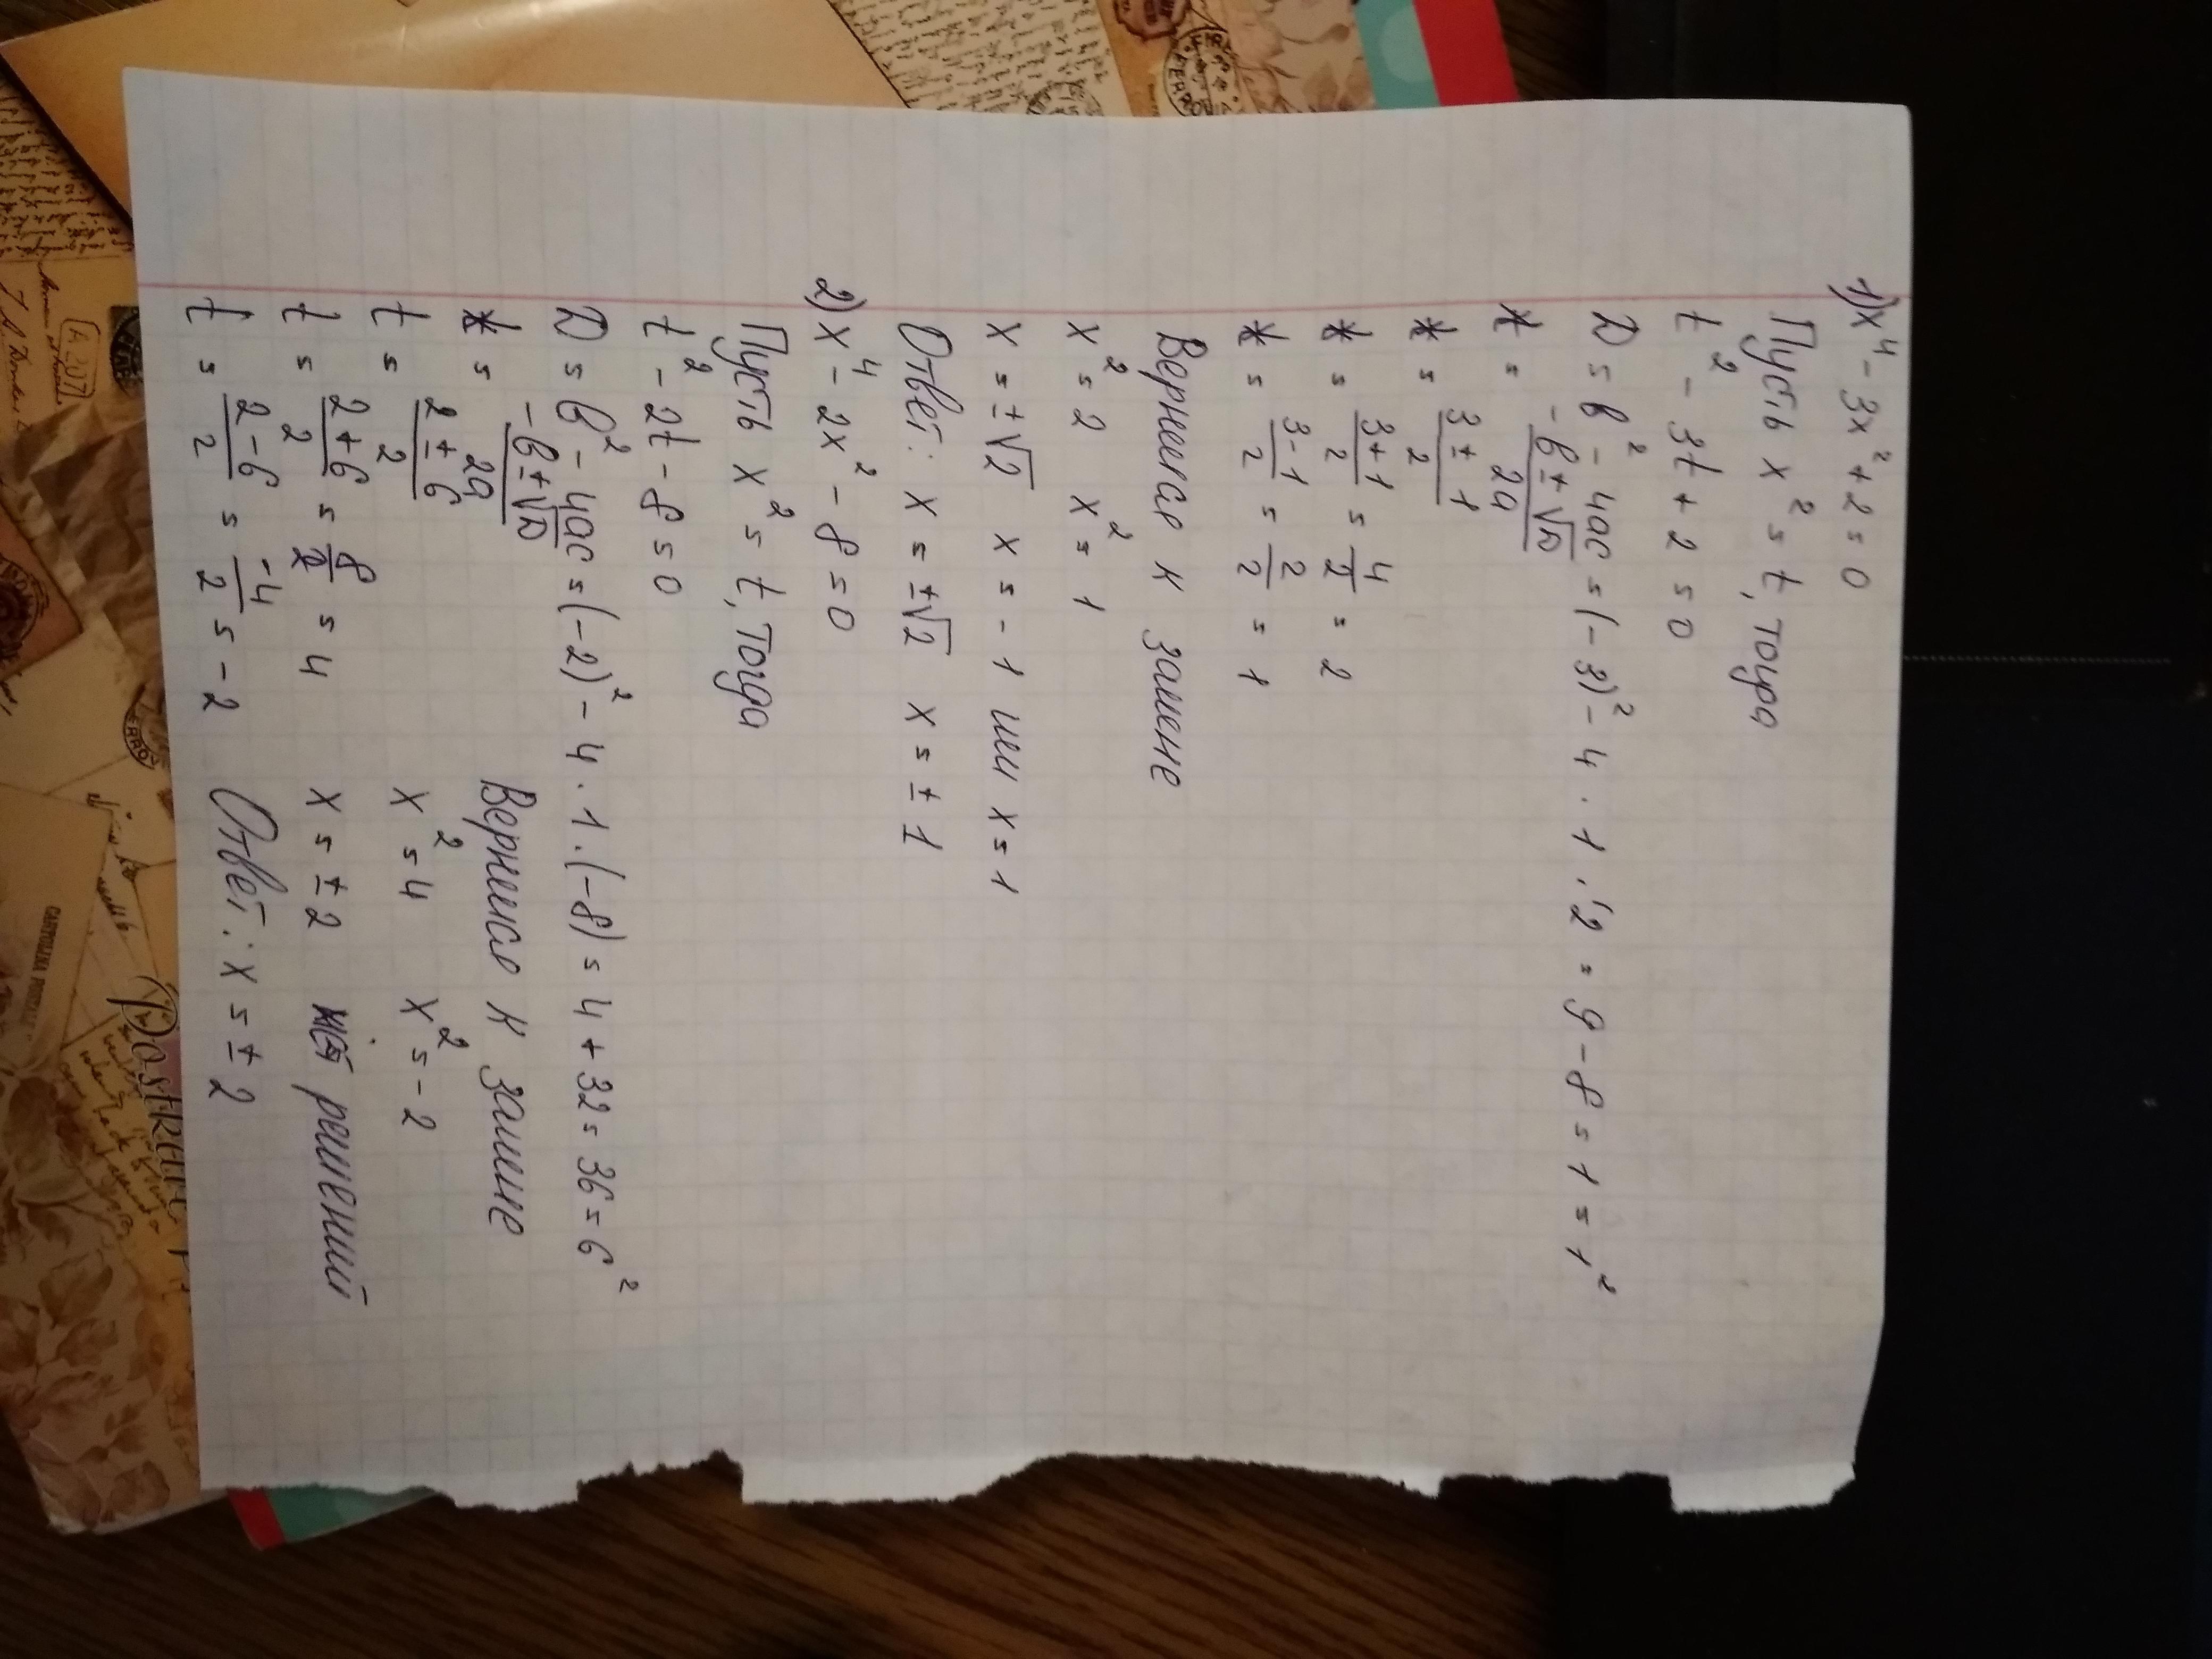 1) x⁴ - 3x² + 2 = 0
Пусть x² = t, тогда
t² - 3t + 2 = 0
D = b² - 4ac = (-3)² - 4 · 1 · 2 = 9 - 8 = 1 = 1²
t = -b ± √D / 2a
t = 3 ± 1 / 2
t = 3 + 1 / 2 = 4 / 2 = 2
t = 3 - 1 / 2 = 2 / 2 = 1
Вернемся к замене
x² = 2 x² = 1
x = ±√2 x = -1 или x = 1
Ответ: x = ±√2 x = ±1
2) x⁴ - 2x² - 8 = 0
Пусть x² = t, тогда
t² - 2t - 8 = 0
D = b² - 4ac = (-2)² - 4 · 1 · (-8) = 4 + 32 = 36 = 6²
t = -b ± √D / 2a
t = 2 ± 6 / 2
t = 2 + 6 / 2 = 8 / 2 = 4
t = 2 - 6 / 2 = -4 / 2 = -2
Вернемся к замене
x² = 4 x² = -2
x = ±2 нет решений
Ответ: x = ±2